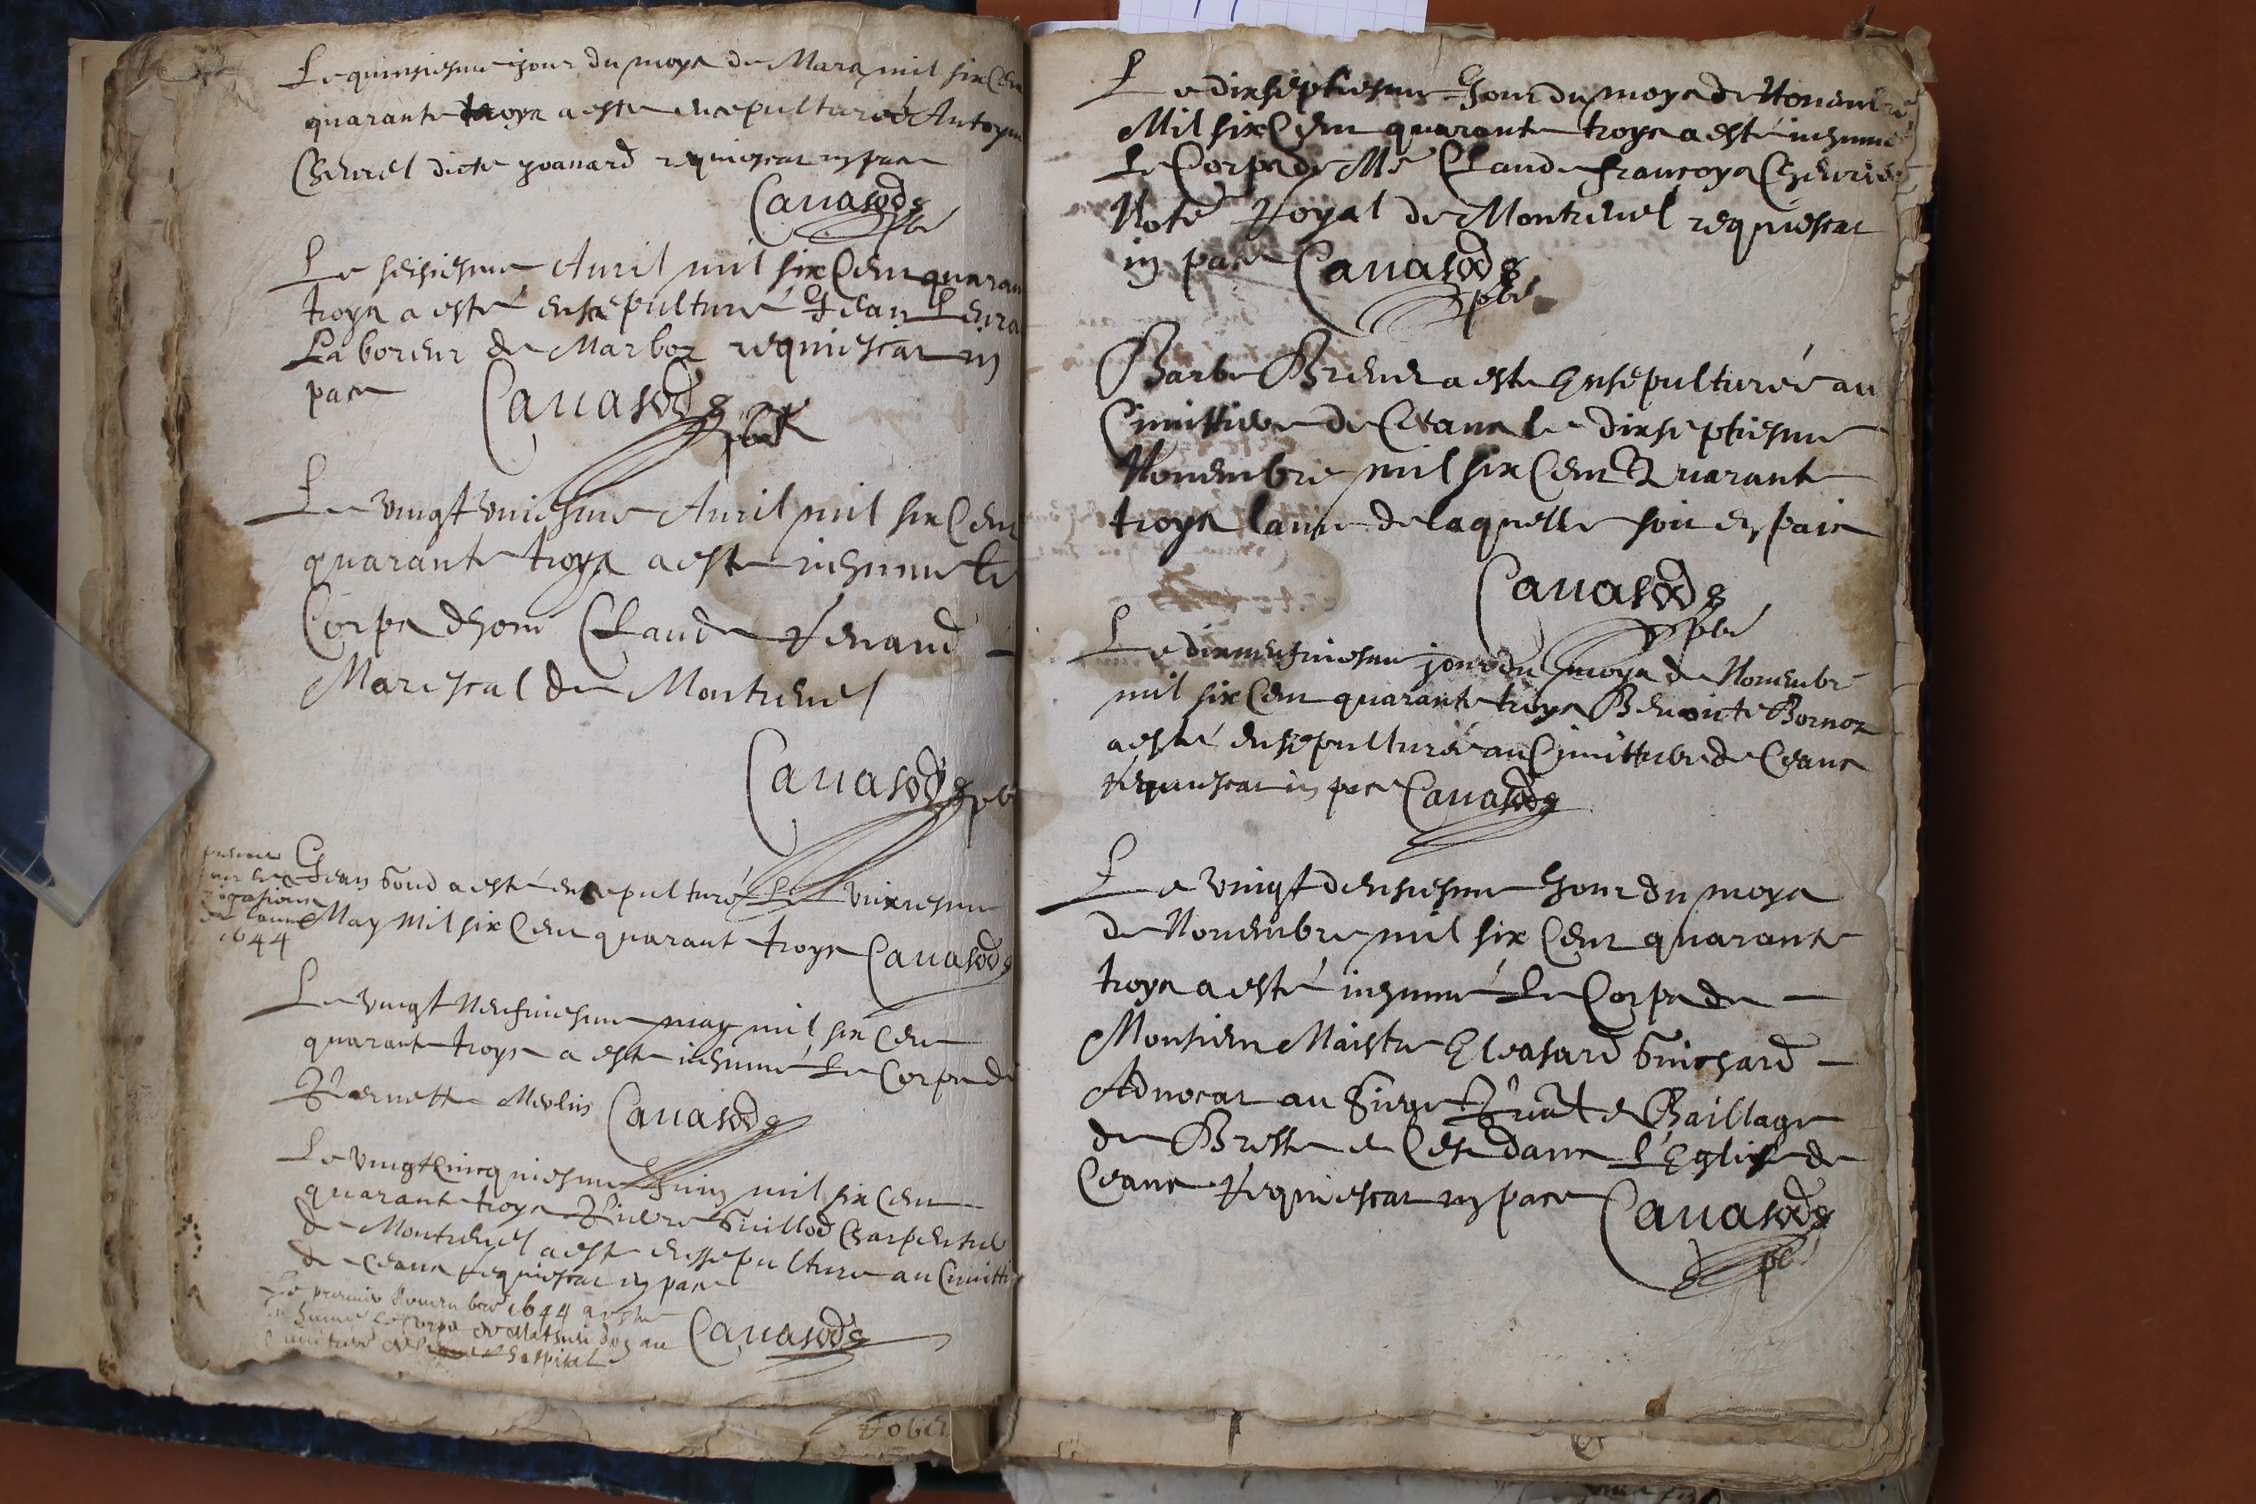 Le quinsiesme jour du moys de Mars mil six Cen
quarante troys a este ensepulturéé Antoyn
Chevrel dicte
requiescat in pace
Cavasod
pbre
Le seisiesme Avril mil six Cen quaran
troys a esté ensepulturé Jean
Laboreur de Marboz requiescat in
pace
Cavasod
pbre
Le vingt uniesme Avril mil six Cen
quarante troys a este inhumé le
Corps dhon Claude Renaud
Mareschal de Montrevel
Cavasod pb
Jean Goud a esté ensepulturé Le
May Mil six Cen quarant troys Cavasod
de lanne
1644
Le vingt Neufviesme may mil six Cen
quarante troys a este inhumé Le Corps de
Pernette Cavasod
Le vingt Cincquiesme Juin mil six Cen
quarante troys Pierre Guillod Charpentier
de Montrevel a este ensepulture au Cimitti
de Ceans requiescat in pace
Cavasod
Le premier Novembre 1644 a este
inhumé Le Corps de au
Cimitiere de hospital
Le dixseptiesme Jour du moys de Novembre
Mil six Cen quarante troys a esté inhumé
Le Corps de Me Claude françoys Chevrier
Note Royal de Montrevel requiescat
in pace Cavasod
pbre
Barbe a este Ensepulturéé au
Cimittiere de Ceans Le dixseptiesme
Novembre mil six Cent Quarante
troys lame de laquelle soit en paix
Cavasod
pbre
Le dixneufviesme jour du moys de Novembre
mil six Cen quarante troys Benoicte Bornoz
a esté ensepulturéé au Cimittiere de Ceans
Requiescat in pace Cavasod
Le vingt deusiesme Jour du moys
de Novembre mil six Cent quarante
troys a esté inhumé Le Corps de
Monsieur Maistre Eleasard Guichard
Advocat au Siege et Baillage
de Bresse et Ce dans L'Eglise de
Ceans Requiescat in pace Cavasod
pbre